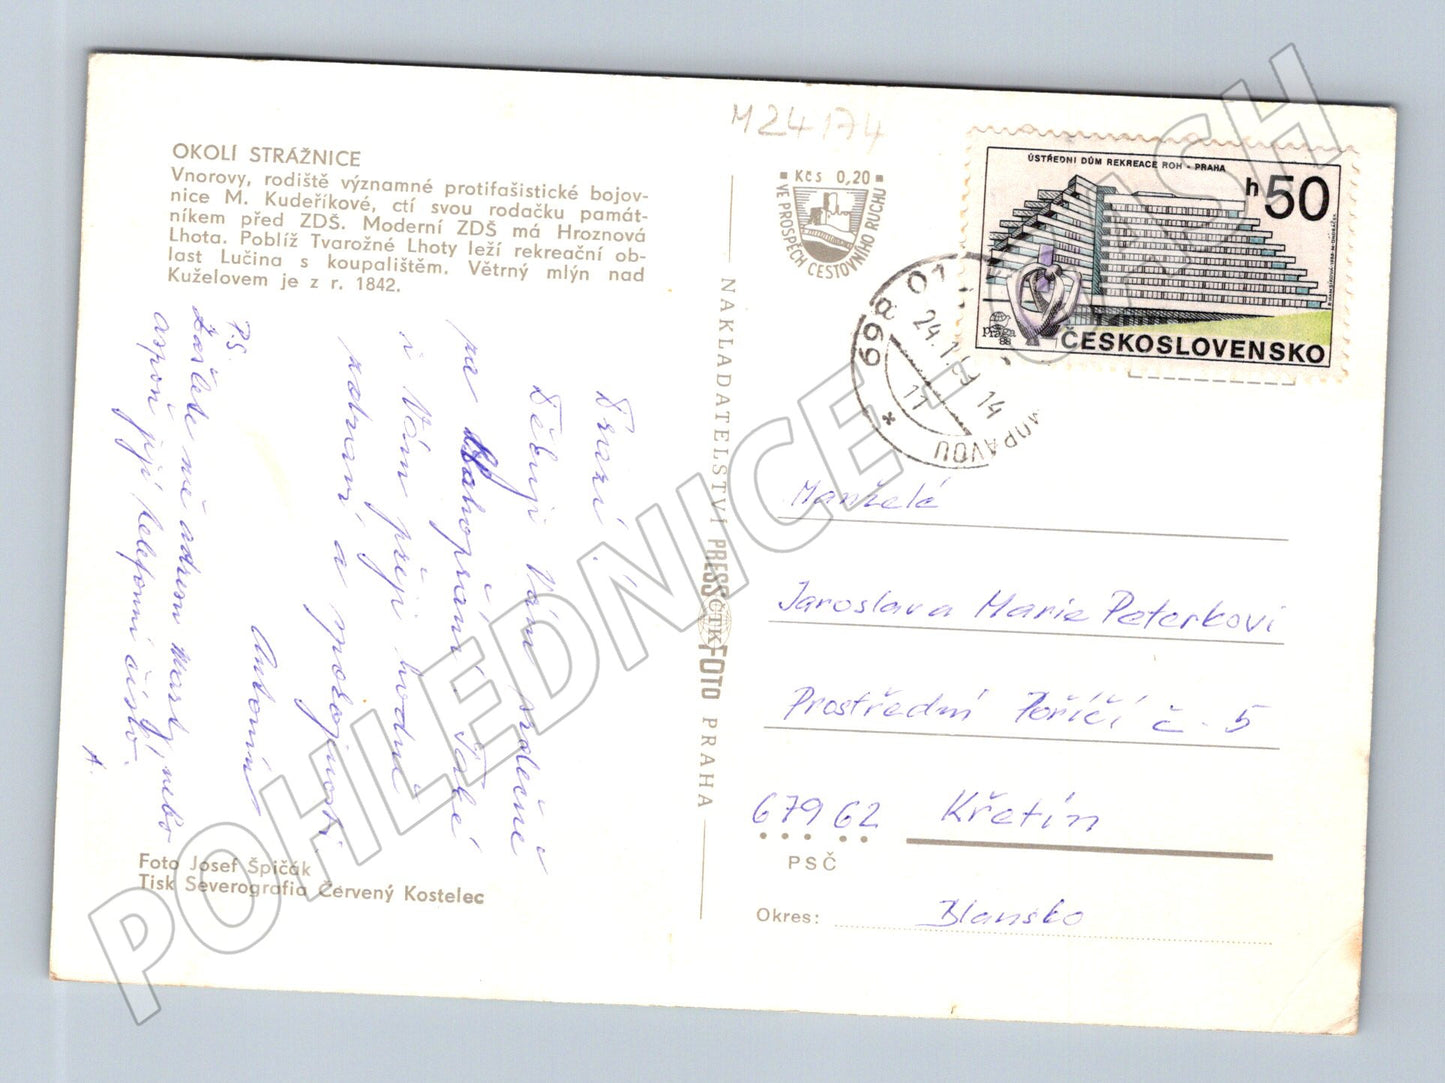 M24174
OKOLÍ STRÁŽNICE
Vnorovy, rodiště významné protifašistické bojov-
nice M. Kudeříkové, ctí svou rodačku památ-
níkem před ZDŠ. Moderní ZDŠ má Hroznová
Lhota. Poblíž Tvarožné Lhoty leží rekreační ob-
last Lučina s koupalištěm. Větrný mlýn nad
Kuželovem je z r. 1842.
Drazí,
Děkuji Vám srdečně
za blahopřání. Také
i Vám přeji hodně
zdraví a spokojenosti
Antonín
PS.
Zašlete mě adresu nebo
aspoň její telefonní číslo.
A.
Foto Josef Špičák
Tisk Severografia Červený Kostelec
NAKLADATELSTVÍ PRESSFOTO PRAHA
ČTK
Kčs 0,20
VE PROSPĚCH CESTOVNÍHO RUCHU
ÚSTŘEDNÍ DŮM REKREACE ROH - PRAHA
h50
praga
88
ČESKOSLOVENSKO
699 01
MORAVOU
14
11
Manželé
Jaroslav a Marie Peterkovi
Prostřední Poříčí č. 5
67962 Křetín
PSČ
Okres: Blansko
POHLEDNICE - CASH